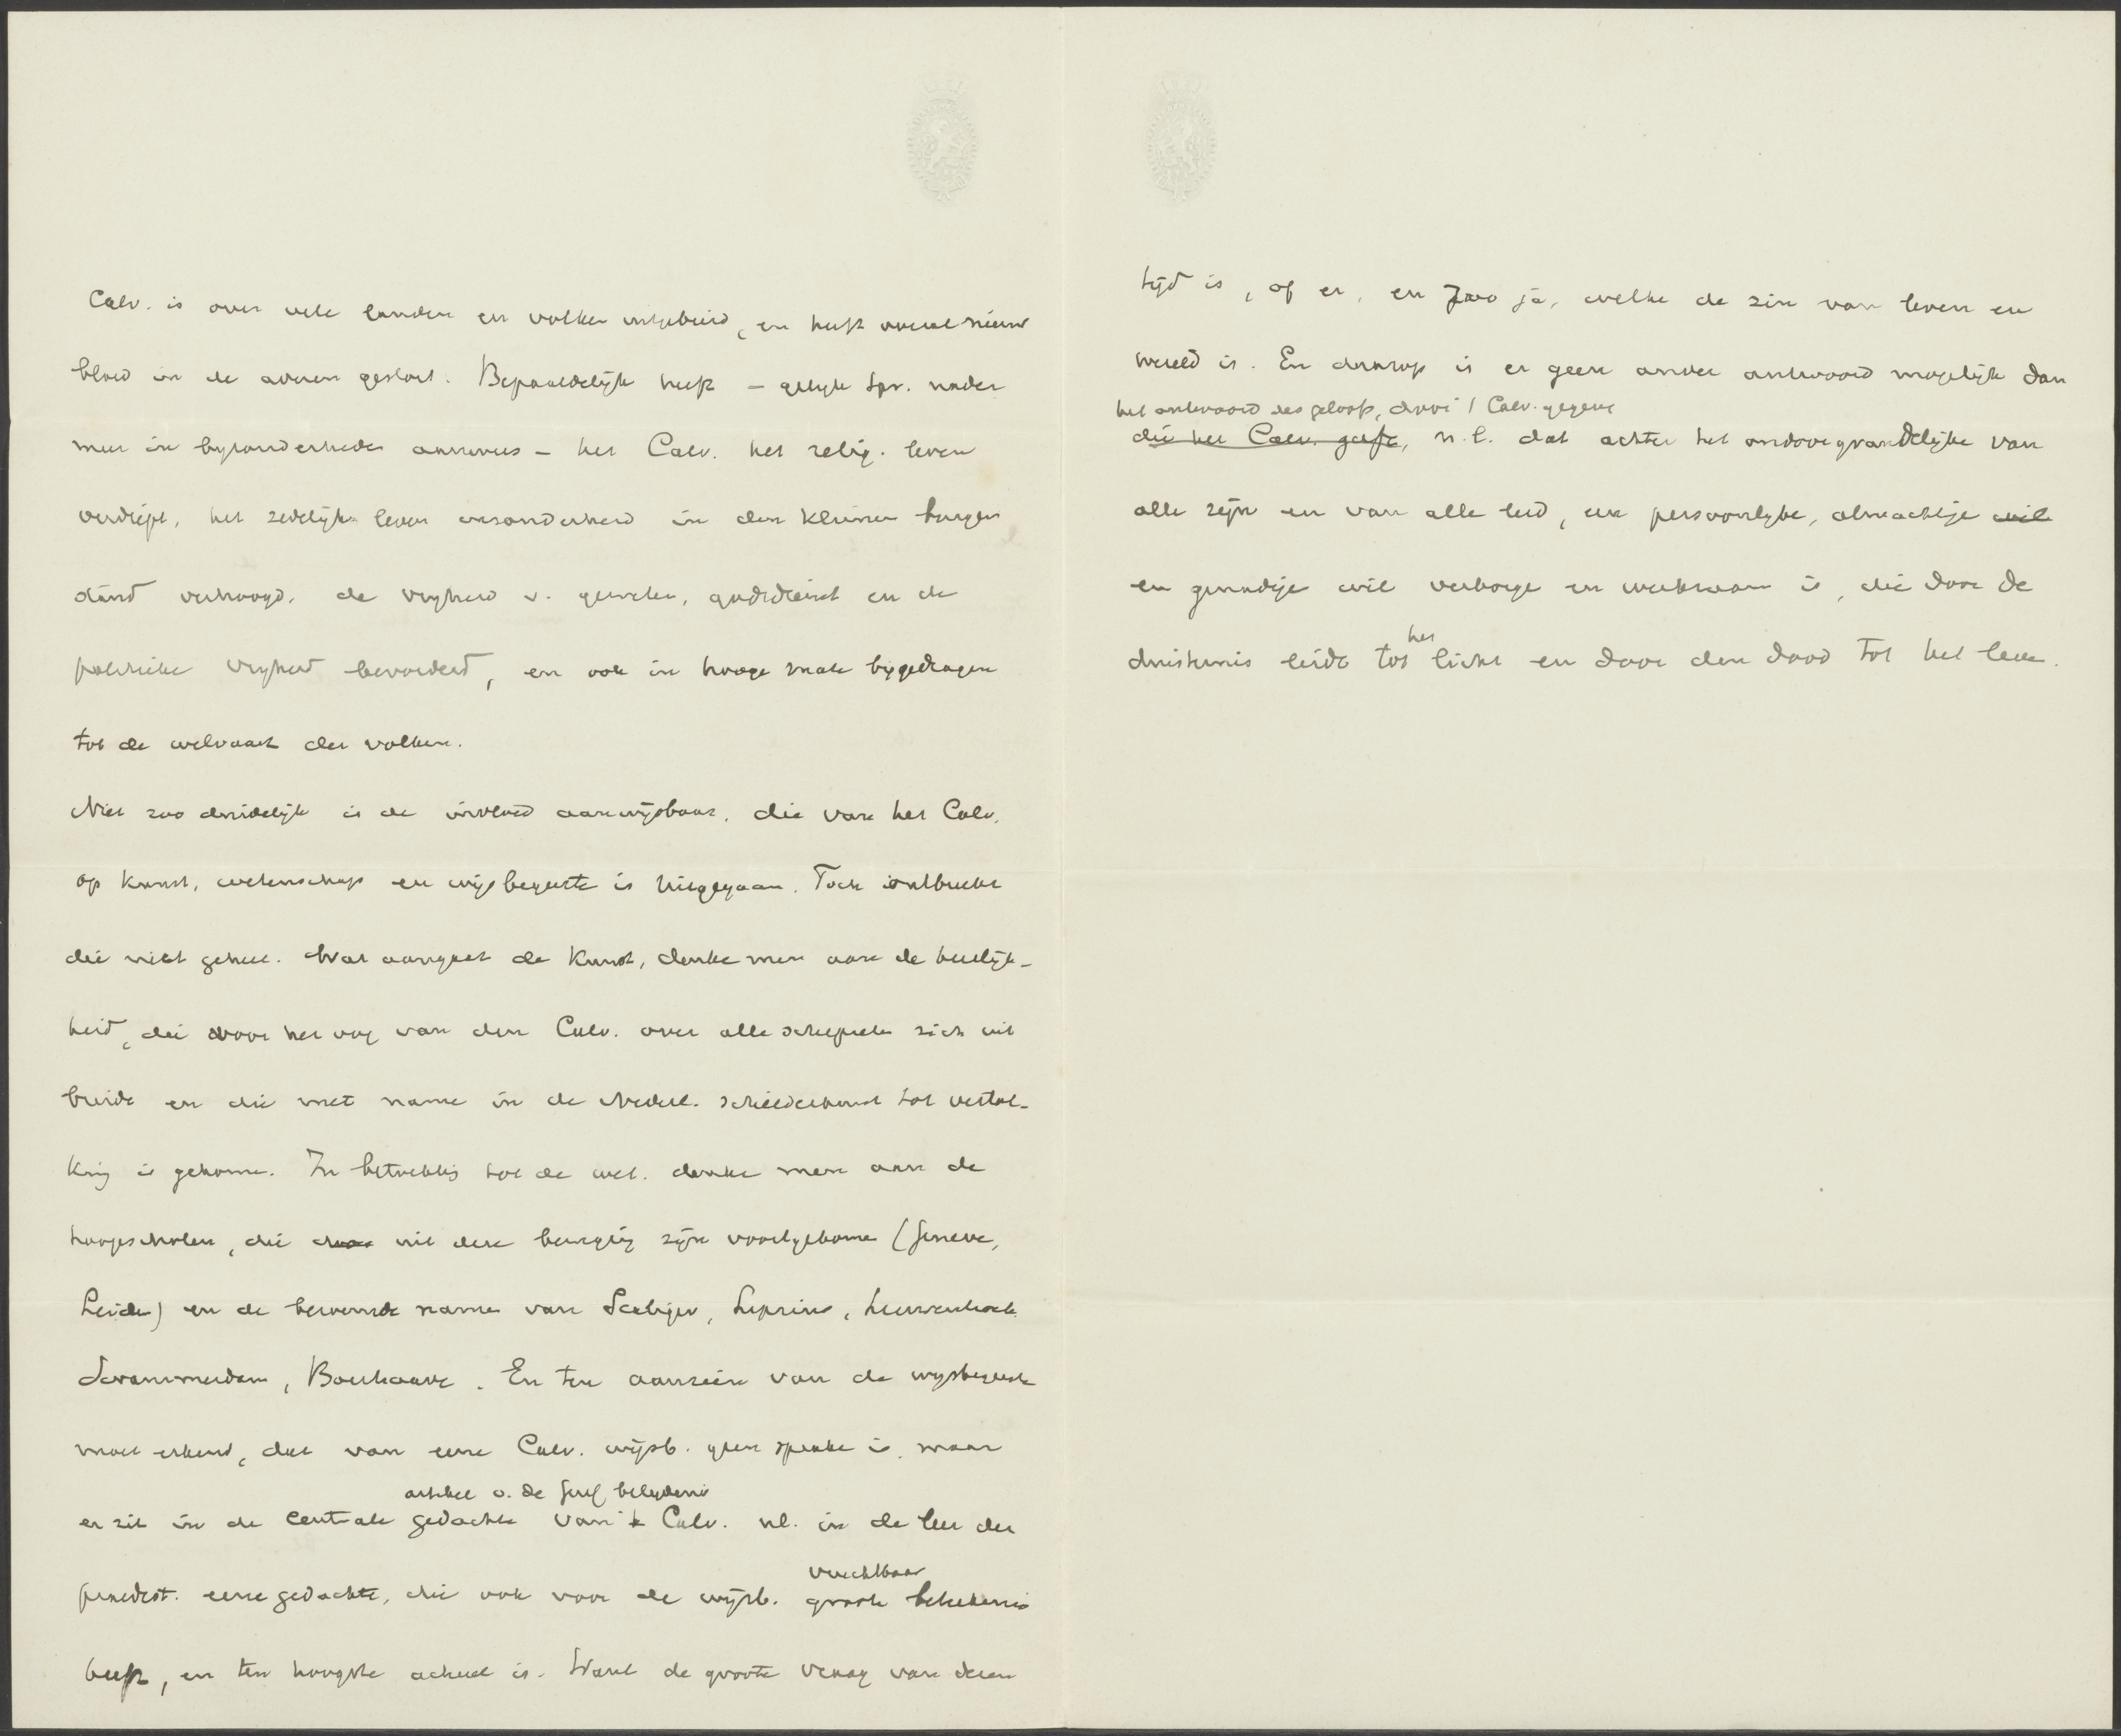 Calv. is over vele landen en volken uitgebreid, en heeft overal nieuw
bloed in de aderen gestort. Bepaaldelijk heeft – gelijk Spr. nader
meer in byzonderheden aanwees – het Calv. het relig. leven
verdiept, het zedelijk leven inzonderheid in den kleinen burger
stand verhoogd, de vryheid v. geweten, godsdienst en de
politieke vryheid bevorderd, en ook in hooge mate bygedragen
tot de welvaart der volken.
Niet zoo duidelijk is de invloed aanwijsbaar, die van het Calv.
op kunst, wetenschap en wijsbegeerte is uitgegaan. Toch ontbreekt
die niet geheel. Wat aangaat de kunst, denke men aan de heerlijk-
heid, die voor het oog van den Calv. over alle schepselen zich uit
breidt en die met name in de Nederl. schilderkunst tot vertol-
king is gekomen. In betrekking tot de wet. denke men aan de
hoogescholen, die door uit deze beweging zijn voortgekomen (Geneve,
Leiden) en de beroemde namen van Scaliger, Lipsius, Leeuwenhoek
Swammerdam, Boerhaave. En ten aanzien van de wysbegeerte
moet erkend, dat van eene Calv. wijsb. geen sprake is, maar
artikel v. de Geref belydenis
er zit in de centrale gedachte van 't Calv. nl. in de leer der
vruchtbaar
praedest. eene gedachte, die ook voor de wijsb. groote beteekenis
heeft, en ten hoogste actueel is. Want de groote vraag van dezen
tijd is, of er, en zoo ja, welke de zin van leven en
wereld is. En daarop is er geen ander antwoord mogelijk dan
het antwoord des geloofs, door 't Calv. gegeven
die het Calv. geeft, n.l. dat achter het ondoorgrondelijke van
alle zijn en van alle leed, een persoonlyke, almachtige wil
en genadige wil verborgen en werkzaam is, die door de
het
duisternis leidt tot licht en door den dood tot het leven.